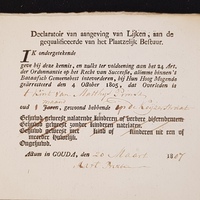 Declaratoir van aangeving van Lijken, aan de
gequalificeerde van het Plaatzelijk Bestuur.
IK ondergeteekende
geeve bij deze kennis, en zulks ter voldoening aan het 24 Art.
der Ordonnantie op het Recht van Successie, alomme binnen 't
Bataafsch Gemeenebest intevorderen, bij Hun Hoog Mogende
gearresteerd den 4 October 1805, dat Overleden is
't Kind van
oud Jaaren, gewoond hebbende op de
Gehuwd geweest nalatende kinderen of verdere descendenten
Gehuwd geweest zonder kinderen natelaten.
kinderen uit een of
meerder Huwelijk.
Ongehuwd.
Actum in GOUDA, den 20 Maart 1807